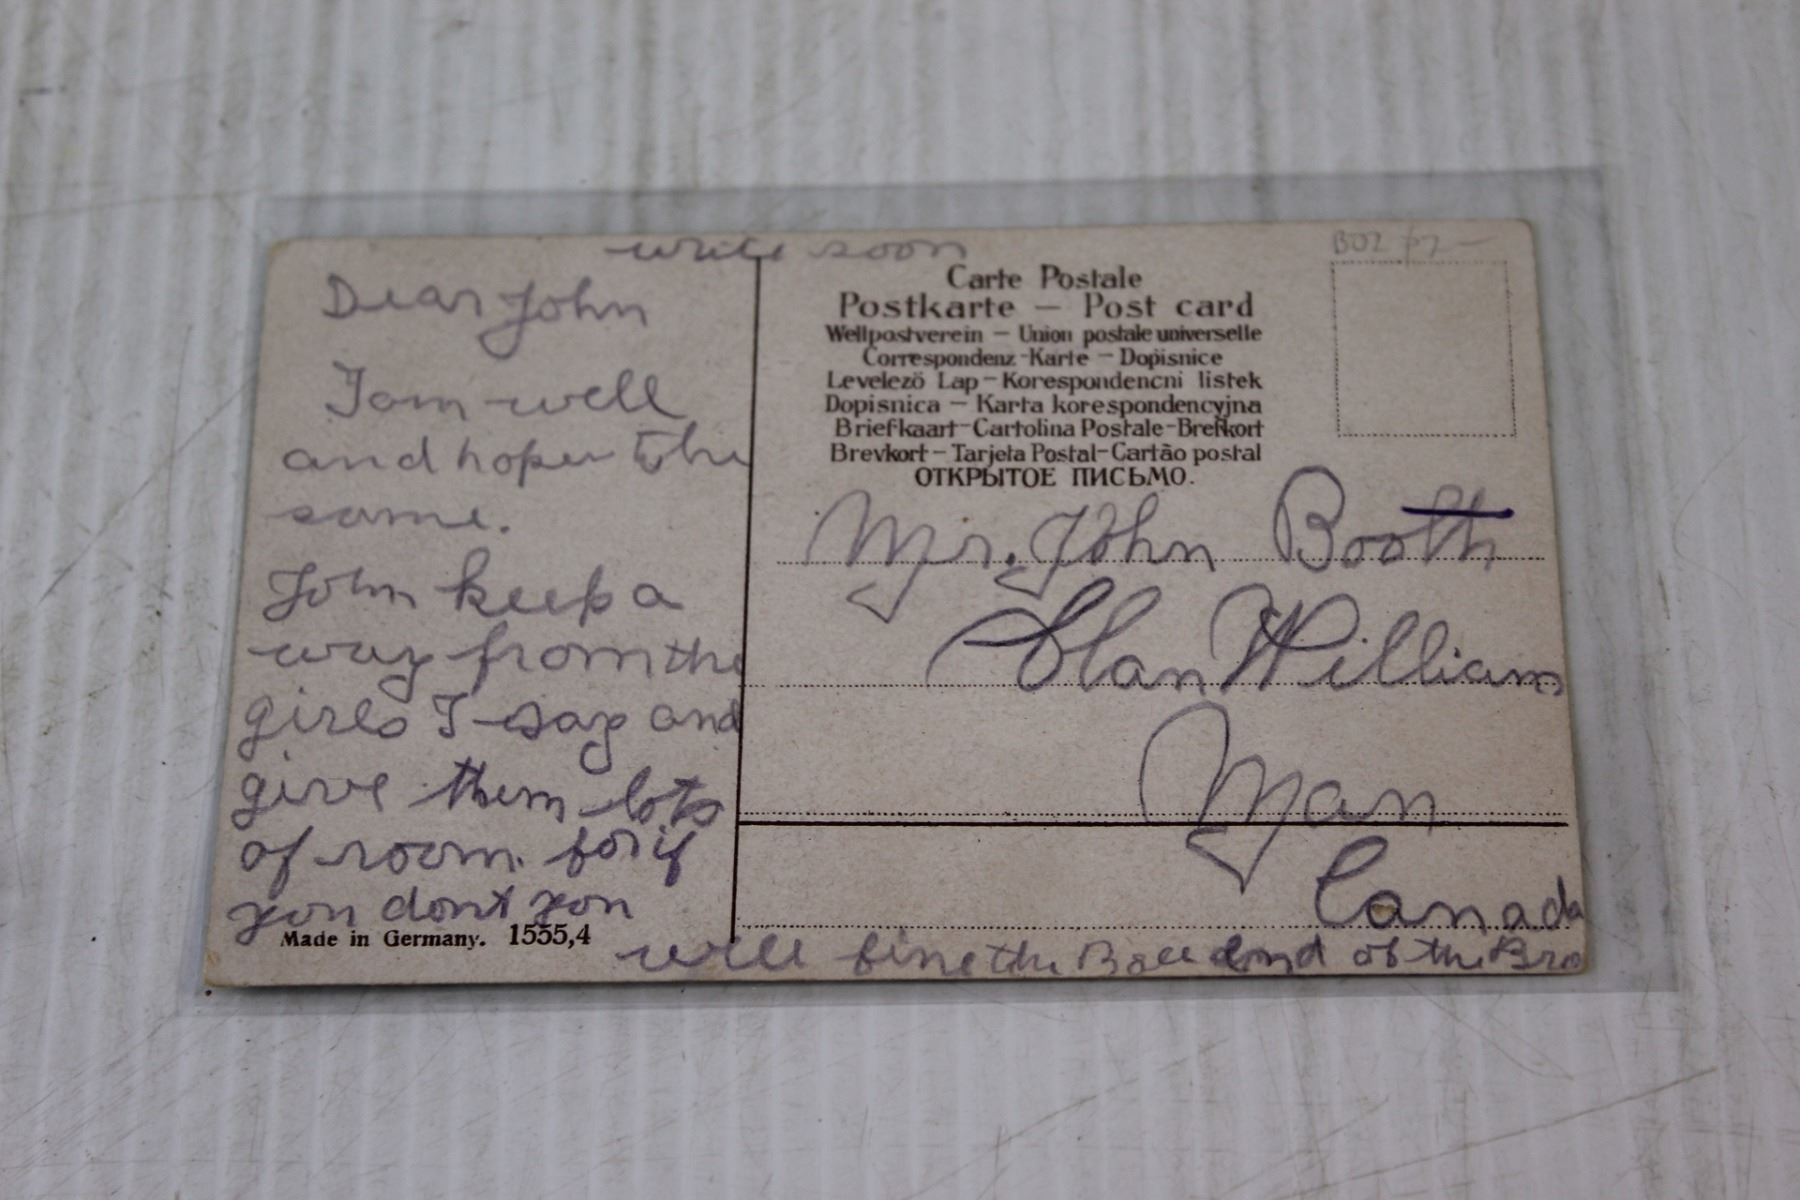 write soon
Dear John
I am well
and hope the
same.
John keep a
way from the
girls I say and
give them lots
of room. for if
you dont you
will fine the Bad end of the Bro
Made in Germany. 1555,4
Carte Postale
Postkarte — Post card
Weltpostverein — Union postale universelle
Correspondenz-Karte — Dopisnice
Levelezö Lap — Korespondencni listek
Dopisnica — Karta korespondencyjna
Briefkaart — Cartolina Postale - Brefkort
Brevkort — Tarjeta Postal - Cartão postal
ОТКРЫТОЕ ПИСЬМО.
Mr. John Booth
William
Man
Canada